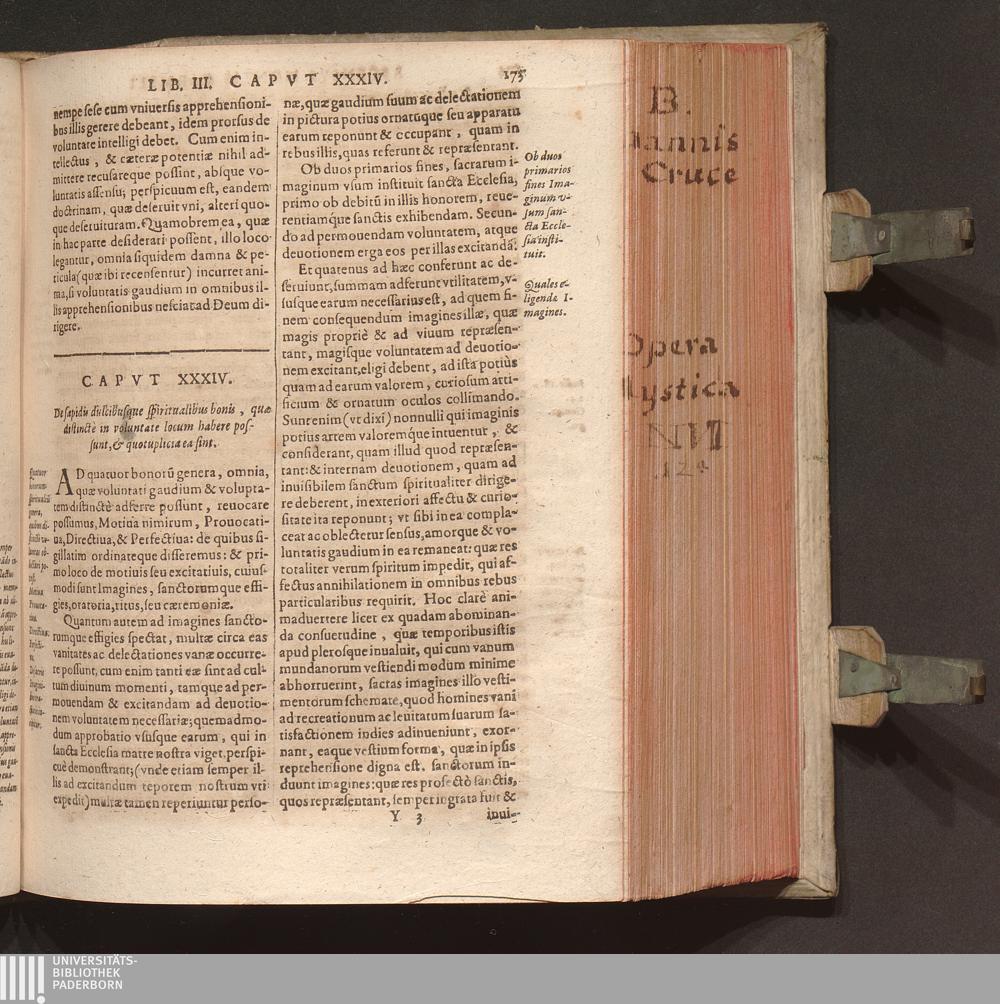 LIB. III. CAPVT XXXIV. 175
nempe sese cum vniuersis apprehensioni-
bus illis gerere debeant, idem prorsus de
voluntare intelligi debet. Cum enim in-
tellectus, & cæteræ potentiæ nihil ad-
mittere recusareque possint, absque vo-
luntatis assensu; perspicuum est, eandem
doctrinam, quæ deseruit vni, alteri quo-
que deseruituram. Quamobrem ea, quæ
in hac parte desiderari possent, illo loco
legantur, omnia siquidem damna & pe-
ricula (quæ ibi recensentur) incurret ani-
ma, si voluntatis gaudium in omnibus il-
lis apprehensionibus nesciat ad Deum di-
rigere.
CAPVT XXXIV.
De sapidis dulcibusque spiritualibus bonis, quæ
distinctè in voluntate locum habere pos-
sunt, & quotuplicia ea sint.
AD quatuor bonorũ genera, omnia,
quæ voluntati gaudium & volupta-
tem distinctè adferre possunt, reuocare
possumus, Motiua nimirum, Prouocati-
ua, Directiua, & Perfectiua: de quibus si-
gillatim ordinateque disseremus: & pri-
mo loco de motiuis seu excitatiuis, cuius-
modi sunt Imagines, sanctorumque effi-
gies, oratoria, ritus, seu cæremoniæ.
Quantum autem ad imagines sancto-
rumque effigies spectat, multæ circa eas
vanitates ac delectationes vanæ occurre-
re possunt, cum enim tanti eæ sint ad cul-
tum diuinum momenti, tamque ad per-
mouendam & excitandam ad deuotio-
nem voluntatem necessariæ; quemadmo-
dum approbatio vsusque earum, qui in
sancta Ecclesia matre nostra viget, perspi-
cuè demonstrant; (vnde etiam semper il-
lis ad excitandum teporem nostrum vti
expedit) multæ tamen reperiuntur perso-
næ, quæ gaudium suum ac delectationem
in pictura potius ornatuque seu apparatu
earum reponunt & occupant, quam in
rebus illis, quas referunt & repræsentant.
Ob duos primarios fines, sacrarum i-
maginum vsum instituit sancta Ecclesia,
primo ob debitũ in illis honorem, reue-
rentiamque sanctis exhibendam. Secun-
do ad permouendam voluntatem, atque
deuotionem erga eos per illas excitandã:
Et quatenus ad hæc conferunt ac de-
seruiunt, summam adferunt vtilitatem, v-
susque earum necessarius est, ad quem fi-
nem consequendum imagines illæ, quæ
magis propriè & ad viuum repræsen-
tant, magisque voluntatem ad deuotio-
nem excitant, eligi debent, ad ista potiùs
quam ad earum valorem, curiosum arti-
ficium & ornatum oculos collimando.
Sunt enim (vt dixi) nonnulli qui imaginis
potius artem valoremque intuentur, &
considerant, quam illud quod repræsen-
tant: & internam deuotionem, quam ad
inuisibilem sanctum spiritualiter dirige-
re deberent, in exteriori affectu & curio-
sitate ita reponunt; vt sibi in ea compla-
ceat ac oblectetur sensus, amorque & vo-
luntatis gaudium in ea remaneat: quæ res
totaliter verum spiritum impedit, qui af-
fectus annihilationem in omnibus rebus
particularibus requirit. Hoc clarè ani-
maduertere licet ex quadam abominan-
da consuetudine, quæ temporibus istis
apud plerosque inualuit, qui cum vanum
mundanorum vestiendi modum minime
abhorruerint, sacras imagines illo vesti-
mentorum schemate, quod homines vani
ad recreationum ac leuitatum suarum sa-
tisfactionem indies adinueniunt, exor-
nant, eaque vestium forma, quæ in ipsis
reprehensione digna est, sanctorum in-
duunt imagines: quæ res profectò sanctis,
quos repræsentant, semper ingrata fuit &
Y 3 inui-
Ob duos
primarios
fines Ima-
ginum v-
sum san-
cta Eccle-
sia insti-
tuit.
Quales e-
ligendæ I-
magines.
B.
annis
Cruce
Opera
ystica
NIT
124
UNIVERSITÄTS-
BIBLIOTHEK
PADERBORN